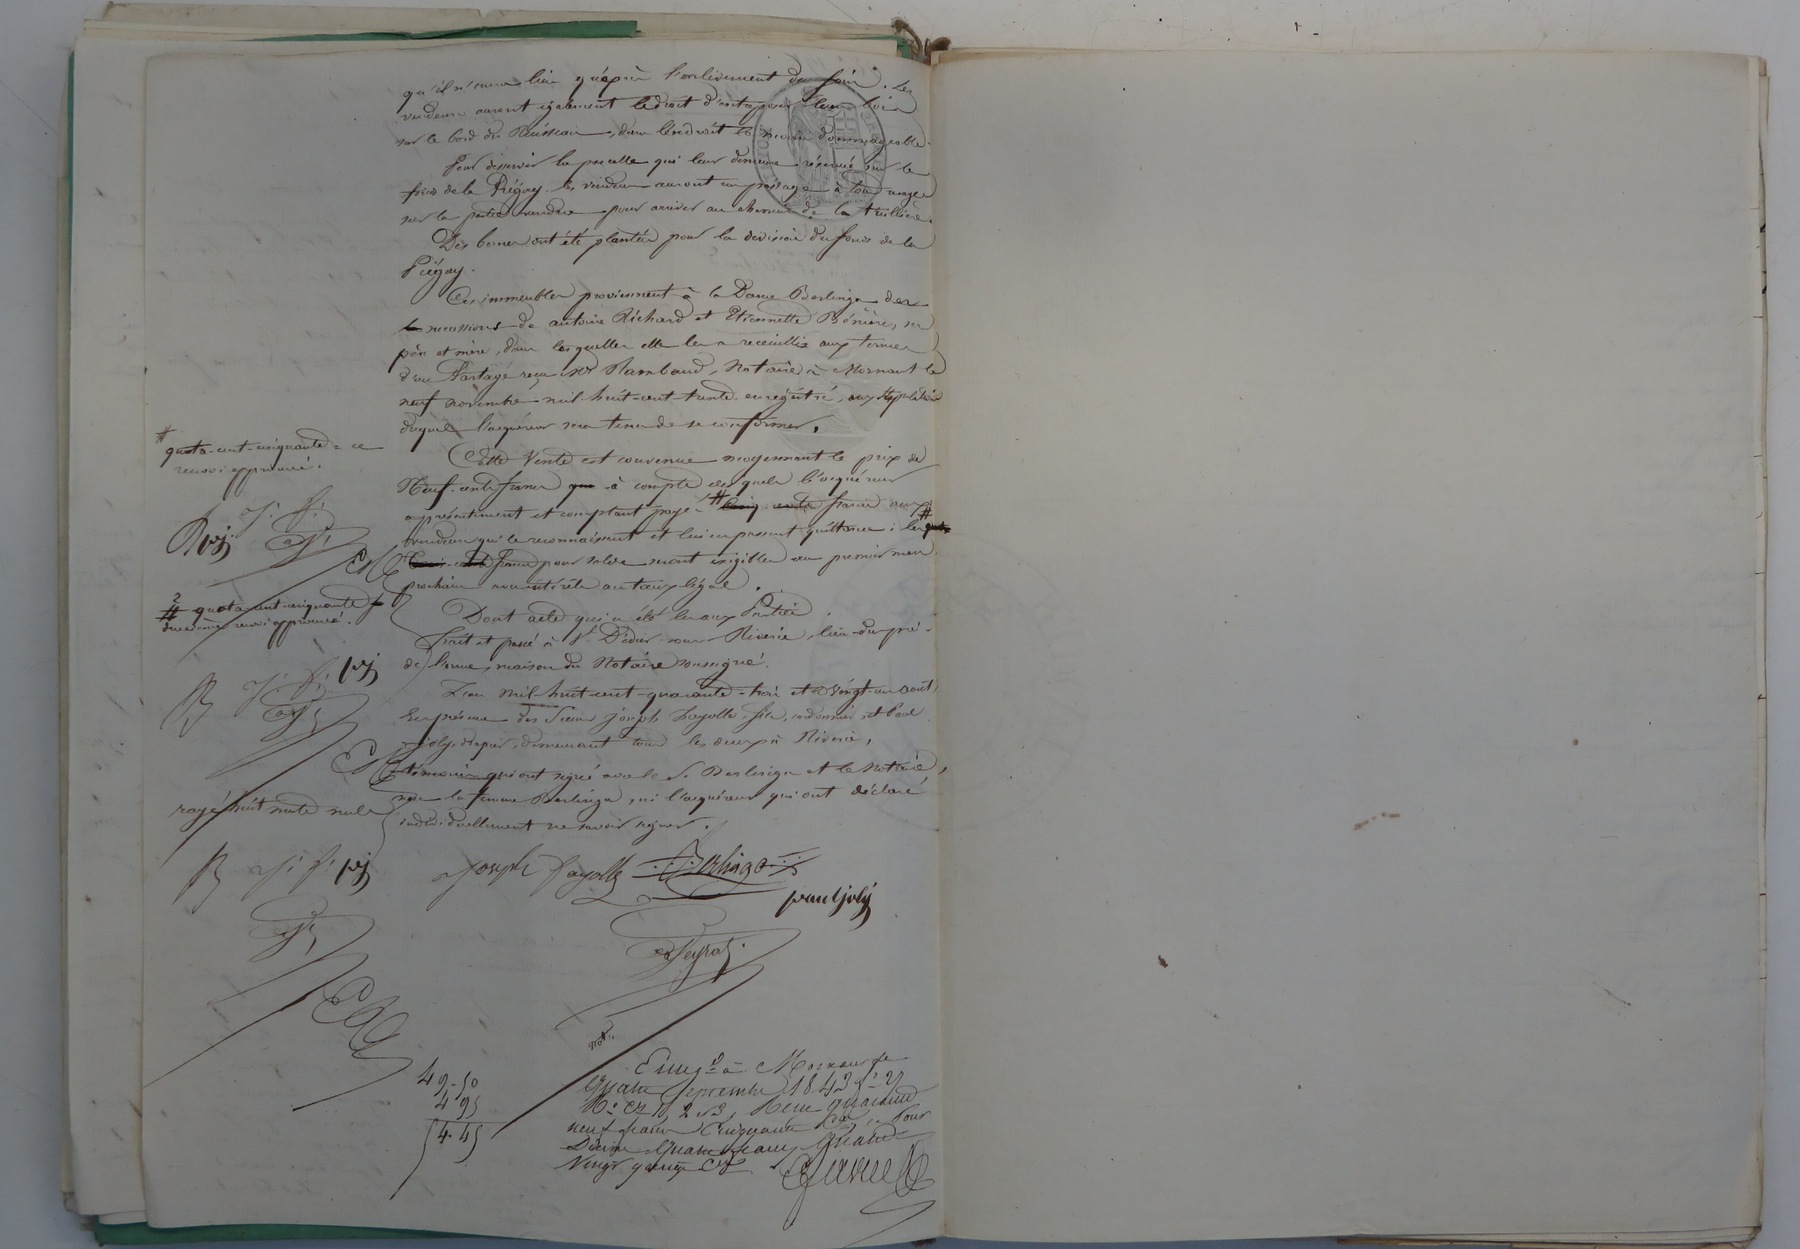 qu'il n'aura lieu qu'après l'enlèvement du foin. Les
vendeurs auront également le droit d'entreposer leur bois
sur le bord du Ruisseau, dans l'endroit le moins dommageable.
Pour desservir la parcelle qui leur demeure réservée sur le
fond de la Piégay les vendeurs auront un passage à tout usage
sur la partie vendue pour arriver au chemin de la
Des bornes ont été plantées pour la division du fonds de la
Piégay.
Ces immeubles proviennent à la Dame Berlinga des
successions de antoine Richard et Etiennette ses
père et mère, dans lesquelles elle les a recueillis aux termes
d'un Partage reçu Me Rambaud, Notaire à Mornant le
neuf novembre mil huit-cent-trente enrégistré, aux stipulations
duquel l'acquéreur sera tenu de se conformer.
Cette Vente est convenue moyennant le prix de
Neuf-cents francs à compte desquels l'acquéreur
a présentement et comptant payé # francs aux
vendeurs qui le reconnaissent et lui en passent quittance; les #
francs pour solde seront exigibles au premier mars
prochain avec intérêts au taux légal.
Dont acte qui a été lu aux Parties
Fait et passé à St. Didier-sous-Riverie, lieu-du-pré-
de l'orme, maison du Notaire soussigné.
L'an mil-huit-cent-quarante-trois et le vingt-un août
En présence des Sieurs Joseph Fayolle fils, cordonnier et Paul
joly drapier, demeurant tous les deux à Riverie,
témoins qui ont signé avec le S. Berlinga et le Notaire,
non la femme Berlinga, ni l'acquéreur qui ont déclaré
individuellement ne savoir signer.
# quatre-cent-cinquante = ce
renvoi approuvé.
J. F.
pj
2
# quatre-cent-cinquante
deuxième renvoi approuvé.
pj
J. F.
rayé huit mots nuls
J. F. pj
Joseph Fayolle Berlinga
paul joly
Peyrat
notre
Enreg.é à Mornant le
quatre septembre 1843
Reçu quarante
neuf francs cinquante
Décime quatre francs
49-50
4 95